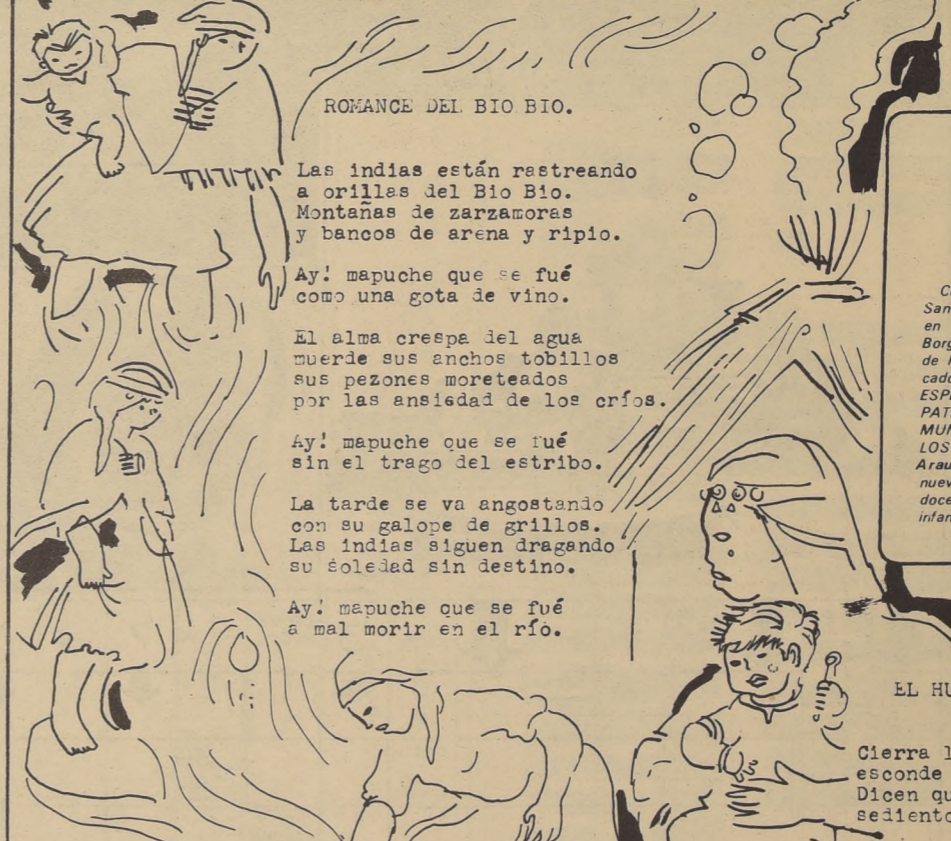 ROMANCE DEL BIO BIO.
Las indias están rastreando
a orillas del Bio Bio.
Montañas de zarzamoras
y bancos de arena y ripio.
Ay! mapuche que se fué
como una gota de vino.
El alma crespa del agua
muerde sus anchos tobillos
sus pezones moreteados
por las ansiedad de los críos.
Ay! mapuche que se fué
sin el trago del estribo.
La tarde se va angostando
con su galope de grillos.
Las indias siguen dragando
su soledad sin destino.
Ay! mapuche que se fué
a mal morir en el río.
en
Borg
de
ESP
PAT
MUN
LOS
Arau
nuev
doce
infan
EL HU
Cierra l
esconde
Dicen qu
sediento